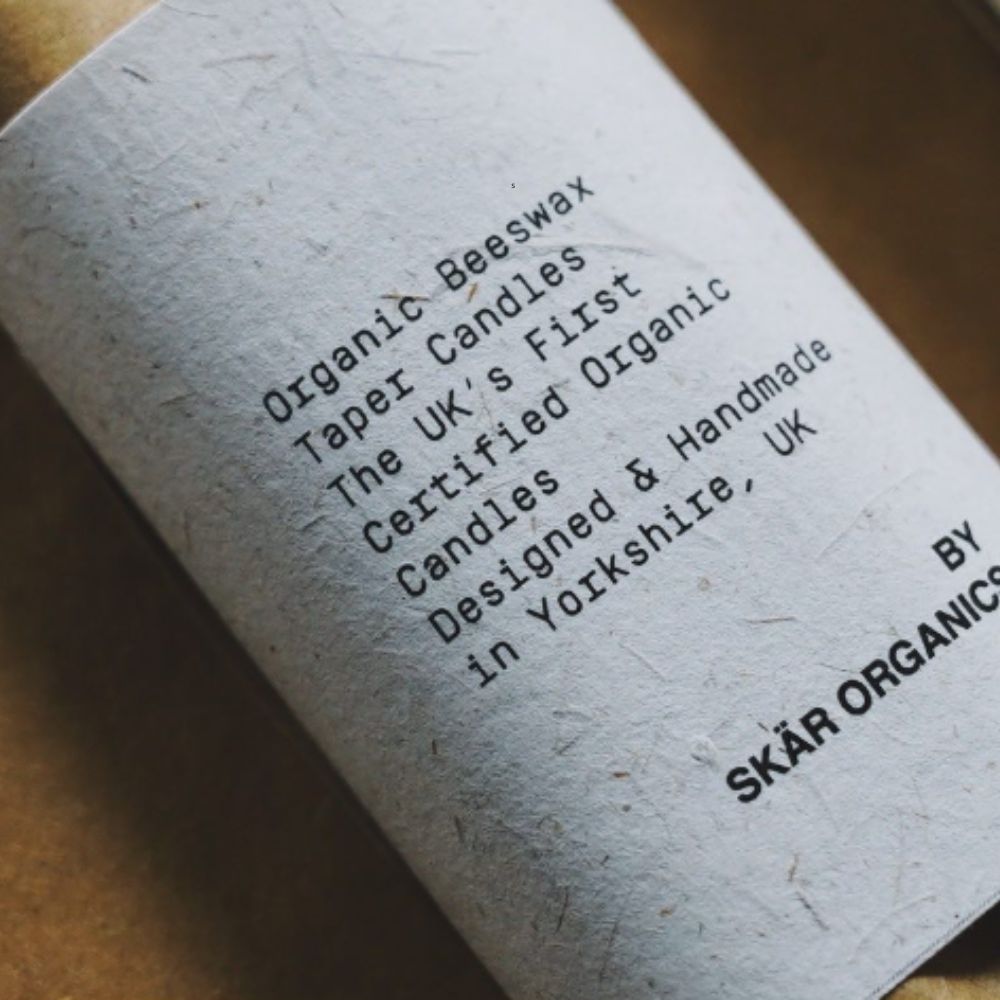 Organic Beeswax
Taper Candles
The UK's First
Certified Organic
Candles
Designed & Handmade
in Yorkshire, UK
BY
SKÄR ORGANICS